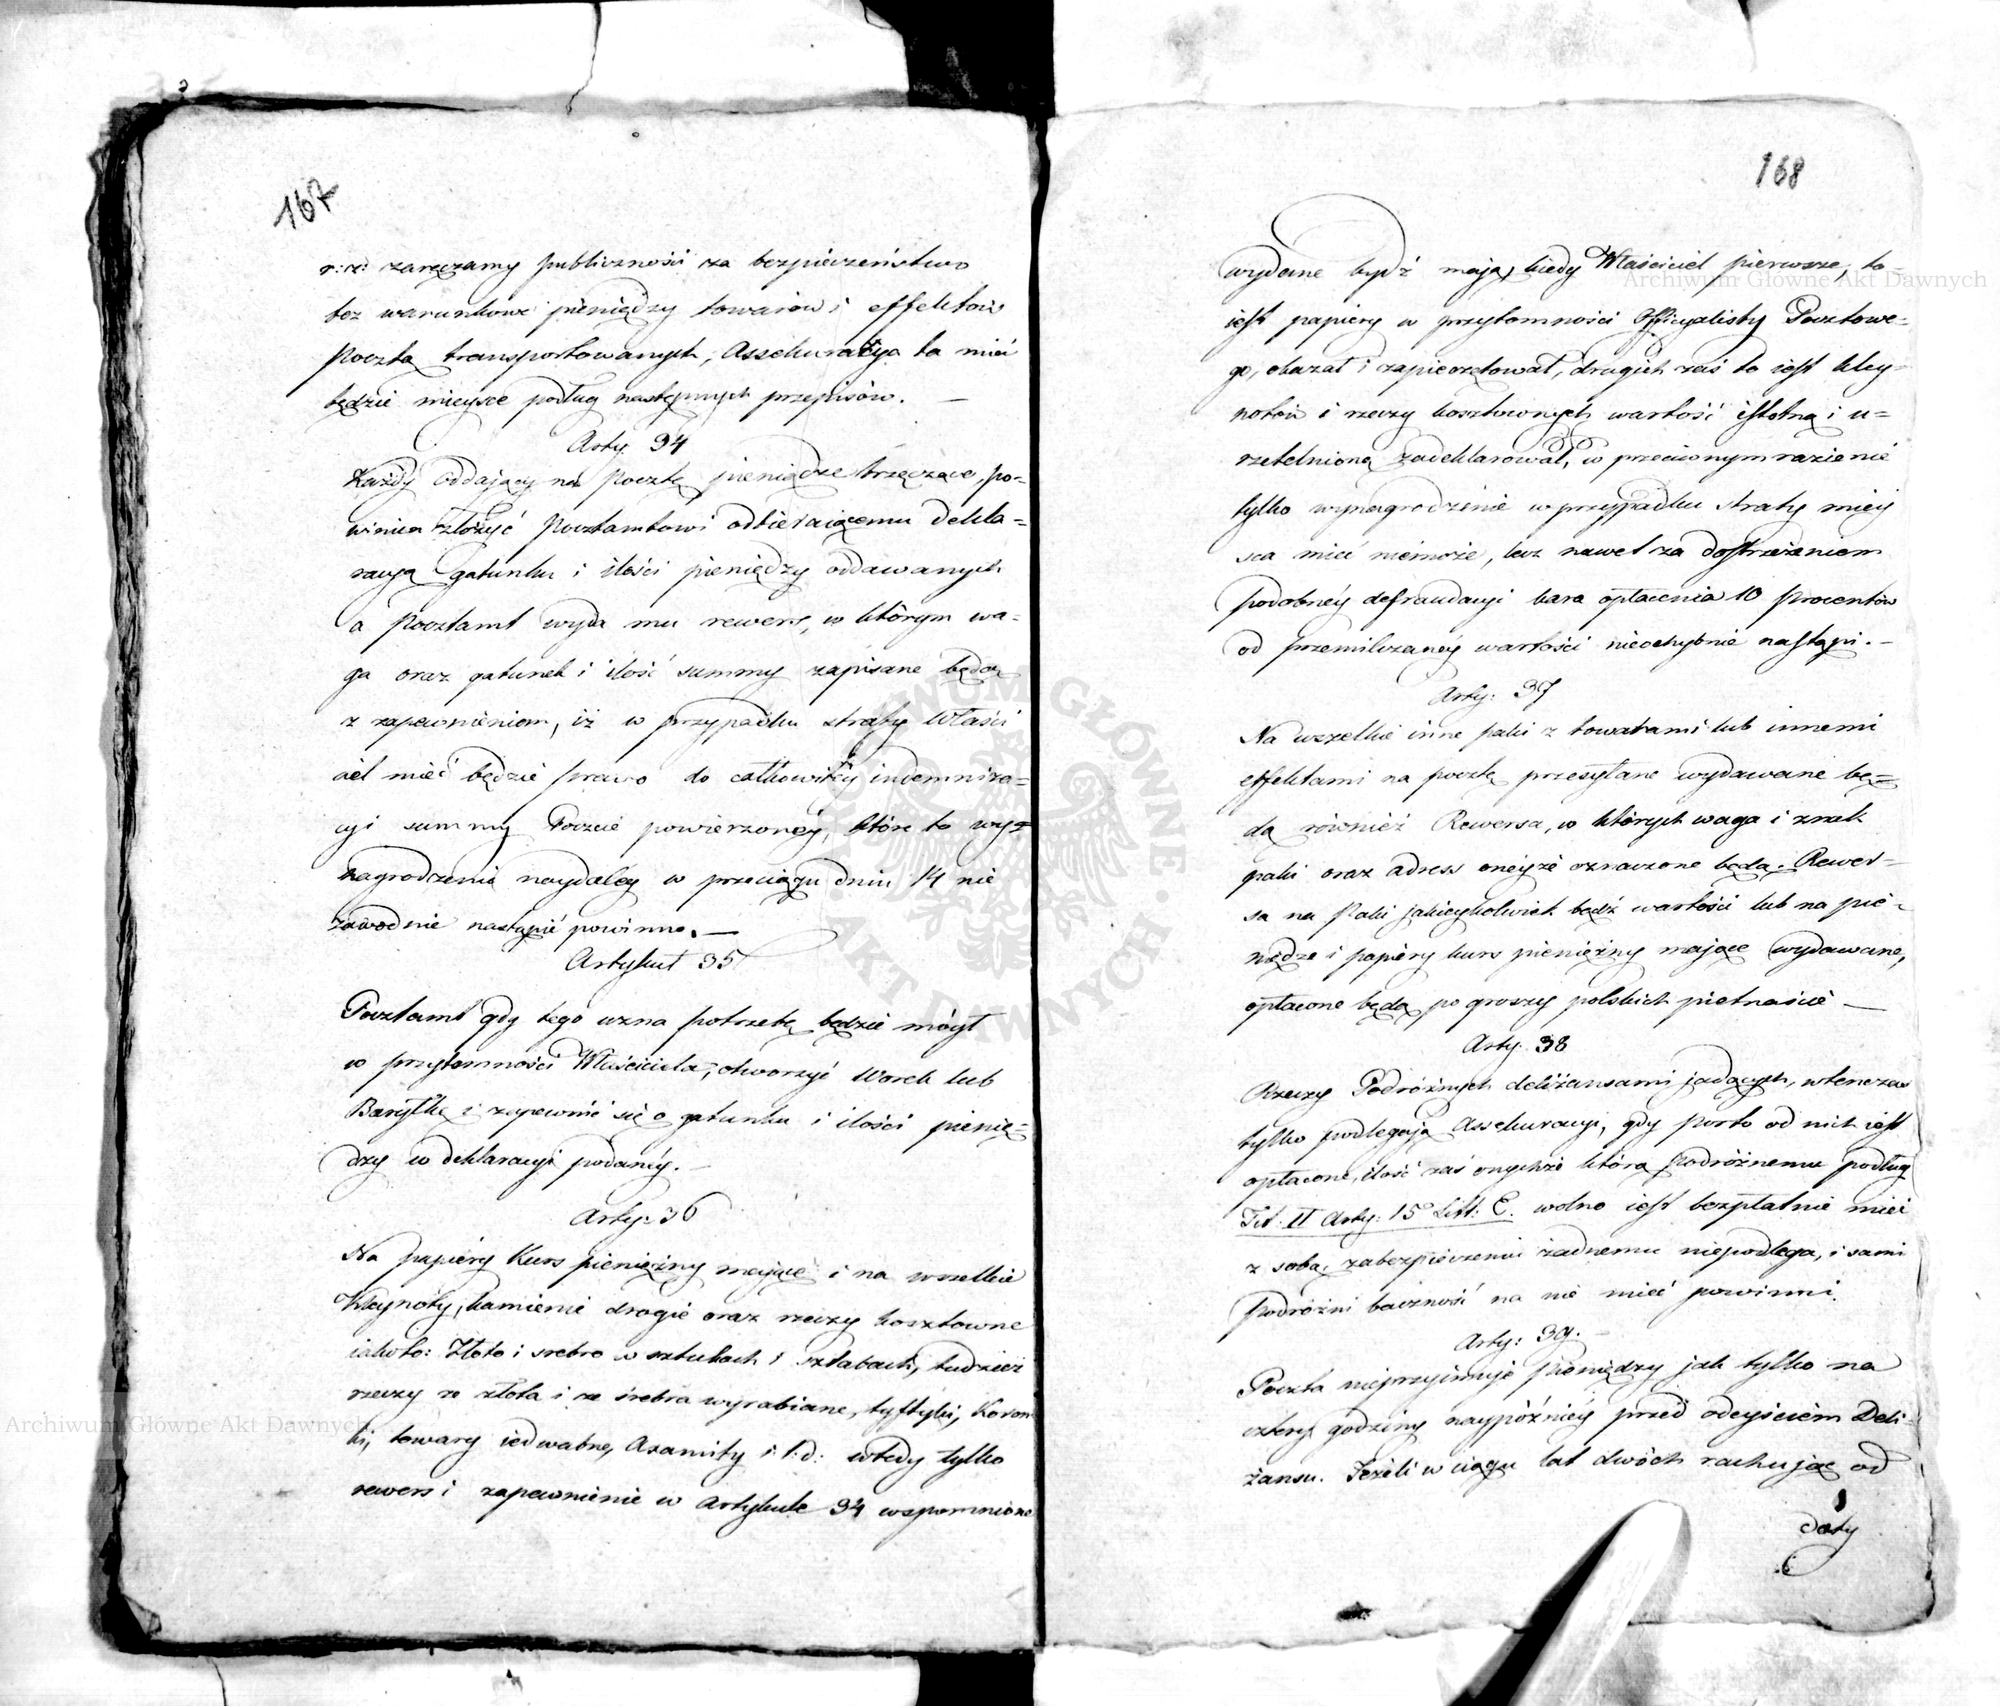 167
r: z: zaręczamy publiczności za bezpieczeństwo
bez warunkowe pieniędzy towarów i effektów
Pocztą transportowanych, Assekuracya ta mieć
będzie mieysce podług następnych przepisów. —
Arty. 34
Każdy oddający na Pocztę pieniądze brzęczące, po=
winien złożyć Pocztamtowi odbieraiącemu dekla=
racyą gatunku i ilości pieniędzy oddawanych
a Pocztamt wyda mu rewers, w którym wa=
ga oraz gatunek i ilość summy zapisane będą
z zapewnieniem, iż w przypadku straty Właści
ciel mieć będzie prawo do całkowitéy indemniza=
cyi summy Poczcie powierzonéy, które to wy=
nagrodzenie naydaléy w przeciągu dniu 14 nie
zawodnie nastąpić powinno. —
Artykuł 35
Pocztamt gdy tego uzna potrzebę będzie mógł
w przytomności Właściciela, otworzyć Worek lub
Baryłkę i zapewnić się o gatunku i ilości pienię=
dzy w deklaracyi podanéy. —
Arty: 36
Na papiéry Kurs pieniężny maiące i na wszelkie
Kleynoty, kamienie drogie oraz rzeczy kosztowne
iakoto: Złoto i srebro w sztukach i sztabach, tudzież
rzeczy ze złota i ze srebra wyrabiane, tyftyki, Koron
ki, towary iedwabne, Axamity i: t: d: wtedy tylko
rewers i zapewnienie w Artykule 34 wspomnione
168
wydane bydź mają, kiedy Właściciel pierwsze, to
iest papiery w przytomności Officyalisty Pocztowe=
go, okazał i zapieczętował, drugich zaś to iest kley=
notów i rzeczy kosztownych wartość istotną i u=
rzetelnioną zadeklarował, w przeciwnym razie nie
tylko wynagrodzenie w przypadku straty miey
sca mieć niemoże, lecz nawet za dostrzeżeniem
podobnéy defraudacyi kara opłacenia 10 procentów
od przemilczanéy wartości nieochybnie nastąpi. —
Arty: 37
Na wszelkie inne paki z towarami lub innemi
effektami na pocztę przesyłane wydawane bę=
dą również Rewersa, w których waga i znak
paki oraz adress oneyże oznaczone będą. Rewer=
sa na Paki jakieykolwiek bądź wartości lub na pie=
niądze i papiéry kurs pieniężny mające wydawane,
opłacone będą po groszy polskich piętnaście —
Arty. 38
Rzeczy Podróżnych deliżansami jadących, wtenczas
tylko podlegają Assekuracyi, gdy porto od nich iest
opłacone, ilość zaś onychże którą podróżnemu podług
Tit: II Arty: 15 Litt: C. wolno iest bezpłatnie mieć
z sobą, zabezpieczeniu żadnemu niepodlega, i sami
podróżni baczność na nie mieć powinni.
Arty: 39.
Poczta nieprzyimuje pieniędzy jak tylko na
cztery godziny naypóźniéy przed odeyściem Deli
żansu. Jeżeli w ciągu lat dwóch rachując od
daty
Archiwum Główne Akt Dawnych
Archiwum Główne Akt Dawnych
ARCHIWUM GŁÓWNE · AKT DAWNYCH ·